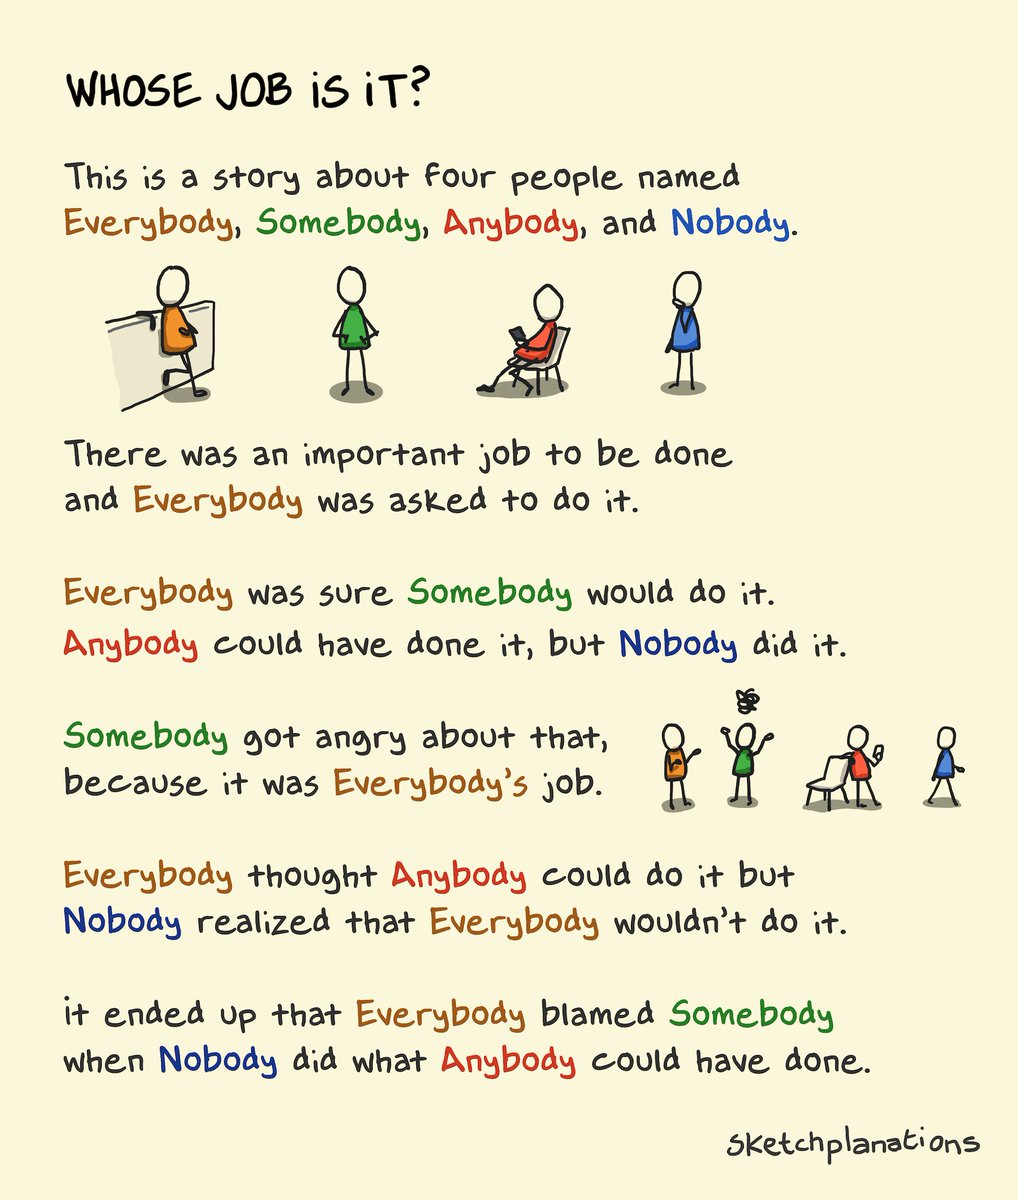 WHOSE JOB iS iT?
This is a story about four people named
Everybody, Somebody, Anybody, and Nobody.
There was an important job to be done
and Everybody was asked to do it.
Everybody was sure Somebody would do it.
Anybody could have done it, but Nobody did it.
Somebody got angry about that,
because it was Everybody's job.
Everybody thought Anybody could do it but
Nobody realized that Everybody wouldn't do it.
it ended up that Everybody blamed Somebody
when Nobody did what Anybody could have done.
sketchplanations